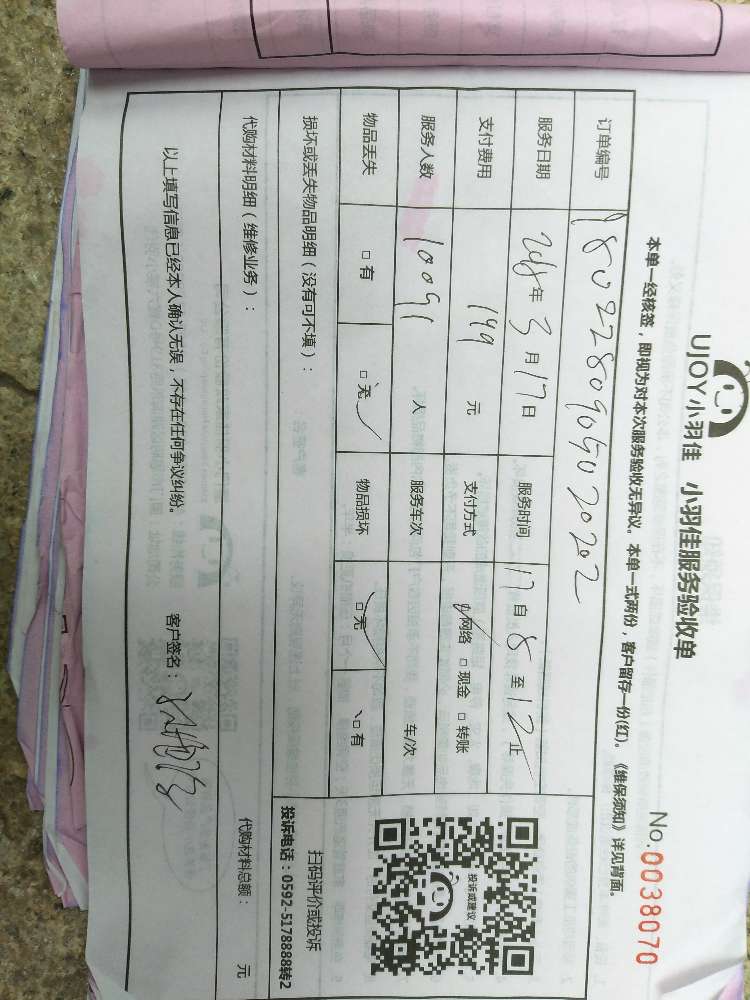 UJOY小羽佳 小羽佳服务验收单
No.0038070
本单一经核签，即视为对本次服务验收无异议。本单一式两份，客户留存一份(红)。《维保须知》详见背面。
订单编号 180228090502022
服务日期 2018年3月17日 服务时间 17自8至12止
支付费用 149元 支付方式 网络 现金 转账
服务人数 10091 人 服务车次 车/次
物品丢失 有 无 物品损坏 无 有
投诉或建议
扫码评价或投诉
投诉电话：0592-5178888转2
损坏或丢失物品明细（没有可不填）：
代购材料明细（维修业务）：
代购材料总额： 元
以上填写信息已经本人确认无误，不存在任何争议纠纷。 客户签名：